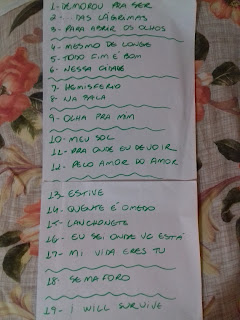 1- DEMOROU PRA SER
2- ... DAS LÁGRIMAS
3- PARA ABRIR OS OLHOS
4- MESMO DE LONGE
5- TODO FIM É BOM
6- NESSA CIDADE
7- HEMISFÉRIO
8- NA SALA
9- OLHA PRA MIM
10- MEU SOL
11- PRA ONDE EU DEVO IR
12- PELO AMOR DO AMOR
13- ESTIVE
14- QUENTE É O MEDO
15- LANCHONETE
16- EU SEI ONDE VC ESTÁ
17- MI VIDA ERES TU
18- SEMAFORO
19- I WILL SURVIVE